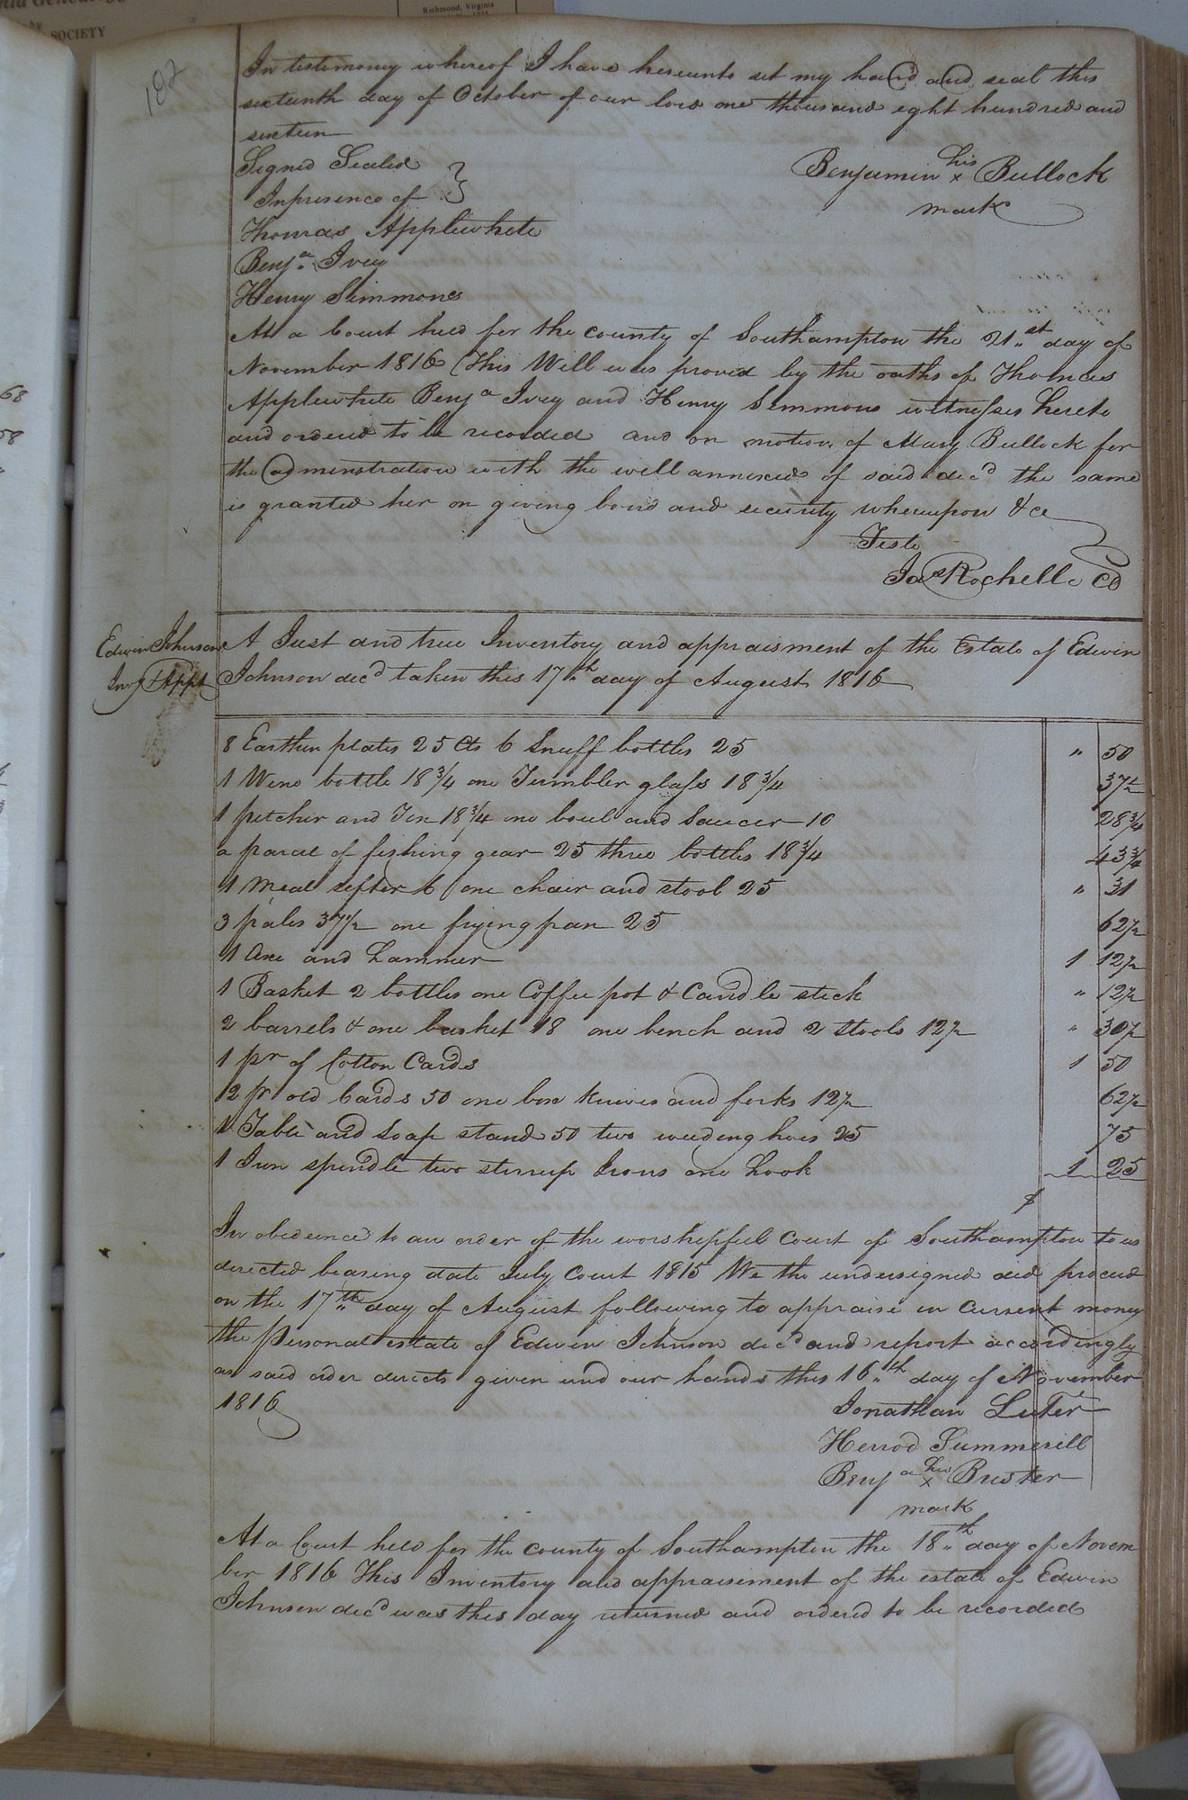 SOCIETY
Richmond, Virginia
182
In testimony whereof I have hereunto set my hand and seal this
sixteenth day of October of our lord one thousand eight hundred and
sixteen
Signed Sealed
In presence of }
Benjamin his x Bullock
mark
Thomas Applewhite
Benja. Ivey
Henry Simmons
At a Court held for the county of Southampton the 21st day of
November 1816 This Will was proved by the oaths of Thomas
Applewhite Benja Ivey and Henry Simmons witnesses hereto
and ordered to be recorded and on motion of Mary Bullock for
the adminstration with the will annexed of said decd the same
is granted her on giving bond and security whereupon &c
Teste
Jas Rochelle CC
Edwin Johnson
Invy & Appt
A Just and true Inventory and appraisment of the Estate of Edwin
Johnson decd taken this 17th day of August 1816
8 Earthen plates 25 Cts 6 Snuff bottles 25 " 50
1 Wine bottle 18 3/4 one Tumbler glass 18 3/4 37 1/2
1 pitcher and Tin 18 3/4 one boul and Saucer 10 28 3/4
a parcel of fishing gear 25 three bottles 18 3/4 43 3/4
1 Meal sifter 6 one chair and stool 25 " 31
3 pales 37 1/2 one frying pan 25 62 1/2
1 Axe and hammer 1 12 1/2
1 Basket 2 bottles one Coffee pot & Candle stick " 12 1/2
2 barrels & one basket 18 one bench and 2 stools 12 1/2 " 30 1/2
1 pr of Cotton Cards 1 50
2 pr old Cards 50 one box knives and forks 12 1/2 62 1/2
1 Table and Soap stand 50 two weeding hoes 25 75
1 Iron spindle two stirrup Irons one hook 1 25
$
In obedience to an order of the worshipful Court of Southampton to us
directed bearing date July Court 1815 We the undersigned did proceed
on the 17th day of August following to appraise in Current money
the Personal estate of Edwin Johnson decd and report accordingly
as said order directs given und our hands this 16th day of November
1816
Jonathan Luter
Herrod Summerill
Benja his x Buster
mark
At a Court held for the county of Southampton the 18th day of Novem
ber 1816 This Inventory and appraisement of the estate of Edwin
Johnson decd was this day returned and ordered to be recorded
68
58